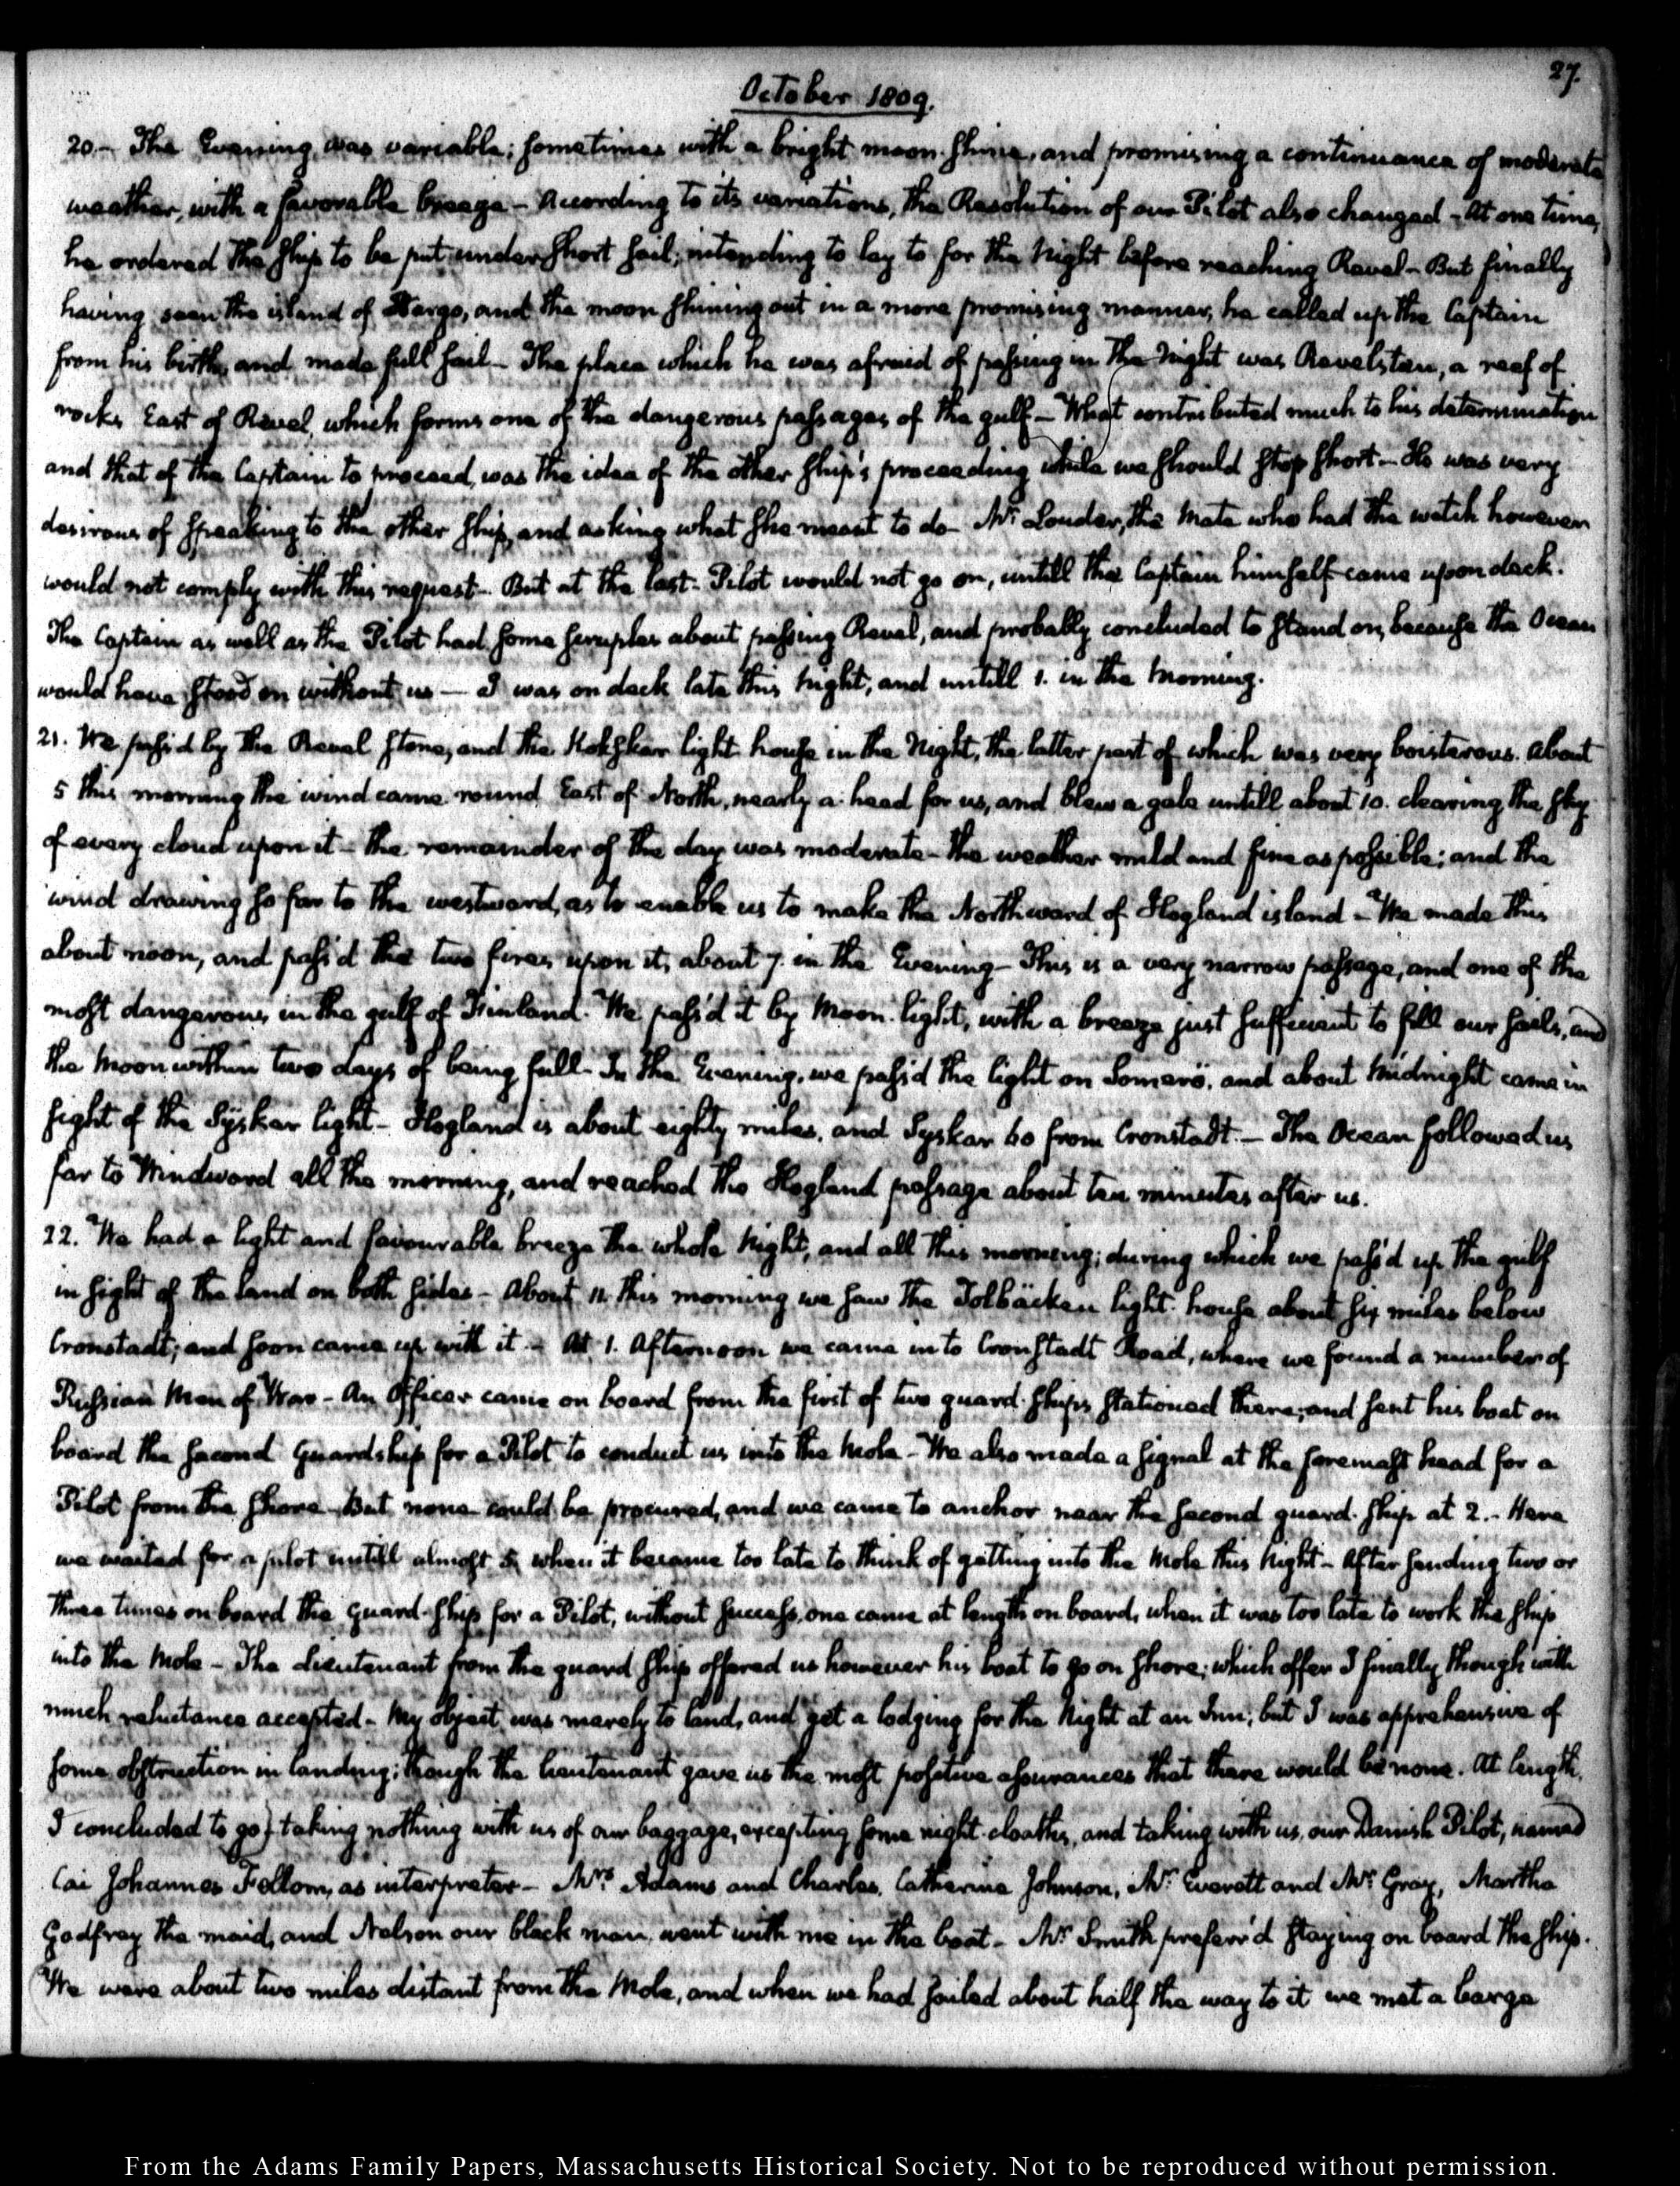 27.
October 1809.
20.- The Evening was variable; sometimes with a bright moon-shine, and promising a continuance of moderate
weather, with a favorable breeze - According to its variations, the Resolution of our Pilot also changed - At one time,
he ordered the ship to be put under short sail; intending to lay to for the Night before reaching Revel - But finally
having seen the island of Nargo, and the moon shining out in a more promising manner, he called up the Captain
from his birth, and made full sail - The place which he was afraid of passing in the Night was Revelsten, a reef of
rocks East of Revel, which forms one of the dangerous passages of the gulf - What contributed much to his determination
and that of the Captain to proceed, was the idea of the other ship's proceeding while we should stop short - He was very
desirous of speaking to the other ship, and asking what she meant to do - Mr. Louder, the Mate who had the watch however
would not comply with this request - But at the last - Pilot would not go on, untill the Captain himself came upon deck.
The Captain as well as the Pilot had some scruples about passing Revel, and probably concluded to stand on, because the Ocean
would have stood on without us — I was on deck late this Night, and untill 1. in the Morning.
21. We pass'd by the Revel stone, and the Kokskar light house in the Night, the latter part of which was very boisterous. About
5 this morning the wind came round East of North, nearly a-head for us, and blew a gale untill about 10. clearing the sky
of every cloud upon it - The remainder of the day was moderate - the weather mild and fine as possible; and the
wind drawing so far to the westward, as to enable us to make the Northward of Hogland island - We made this
about noon, and pass'd the two fires upon it, about 7. in the Evening - This is a very narrow passage, and one of the
most dangerous in the gulf of Finland. We pass'd it by Moon-light, with a breeze just sufficient to fill our sails, and
the Moon within two days of being full - In the Evening, we pass'd the light on Somerö, and about Midnight came in
sight of the Syskar light - Hogland is about eighty miles, and Syskar 60 from Cronstadt. - The Ocean followed us
far to Windward all the morning, and reached the Hogland passage about ten minutes after us.
22. We had a light and favourable breeze the whole Night, and all this morning; during which we pass'd up the gulf
in sight of the land on both sides - About 11 this morning we saw the Tolbäcken light-house about six miles below
Cronstadt; and soon came up with it. - At 1. Afternoon we came into Cronstadt Road, where we found a number of
Russian Men of War - An Officer came on board from the first of two guard-ships stationed there; and sent his boat on
board the second Guardship for a Pilot to conduct us into the Mole - We also made a signal at the foremast head for a
Pilot from the shore - But none could be procured, and we came to anchor near the second guard-ship at 2. - Here
we waited for a pilot untill almost 5, when it became too late to think of getting into the Mole this Night - After sending two or
three times on board the guard-ship for a Pilot, without success, one came at length on board, when it was too late to work the ship
into the Mole - The Lieutenant from the guard ship offered us however his boat to go on shore; which offer I finally though with
much reluctance accepted - My object was merely to land, and get a lodging for the Night at an Inn; but I was apprehensive of
some obstruction in landing; though the lieutenant gave us the most positive assurances that there would be none. At length,
I concluded to go, taking nothing with us of our baggage, excepting some night cloathes, and taking with us, our Danish Pilot, named
Cai Johannes Fellom, as interpreter - Mrs. Adams and Charles, Catherine Johnson, Mr. Everett and Mr. Gray, Martha
Godfrey the maid, and Nelson our black man went with me in the boat - Mr. Smith preferr'd staying on board the ship.
We were about two miles distant from the Mole, and when we had sailed about half the way to it we met a barge
From the Adams Family Papers, Massachusetts Historical Society. Not to be reproduced without permission.